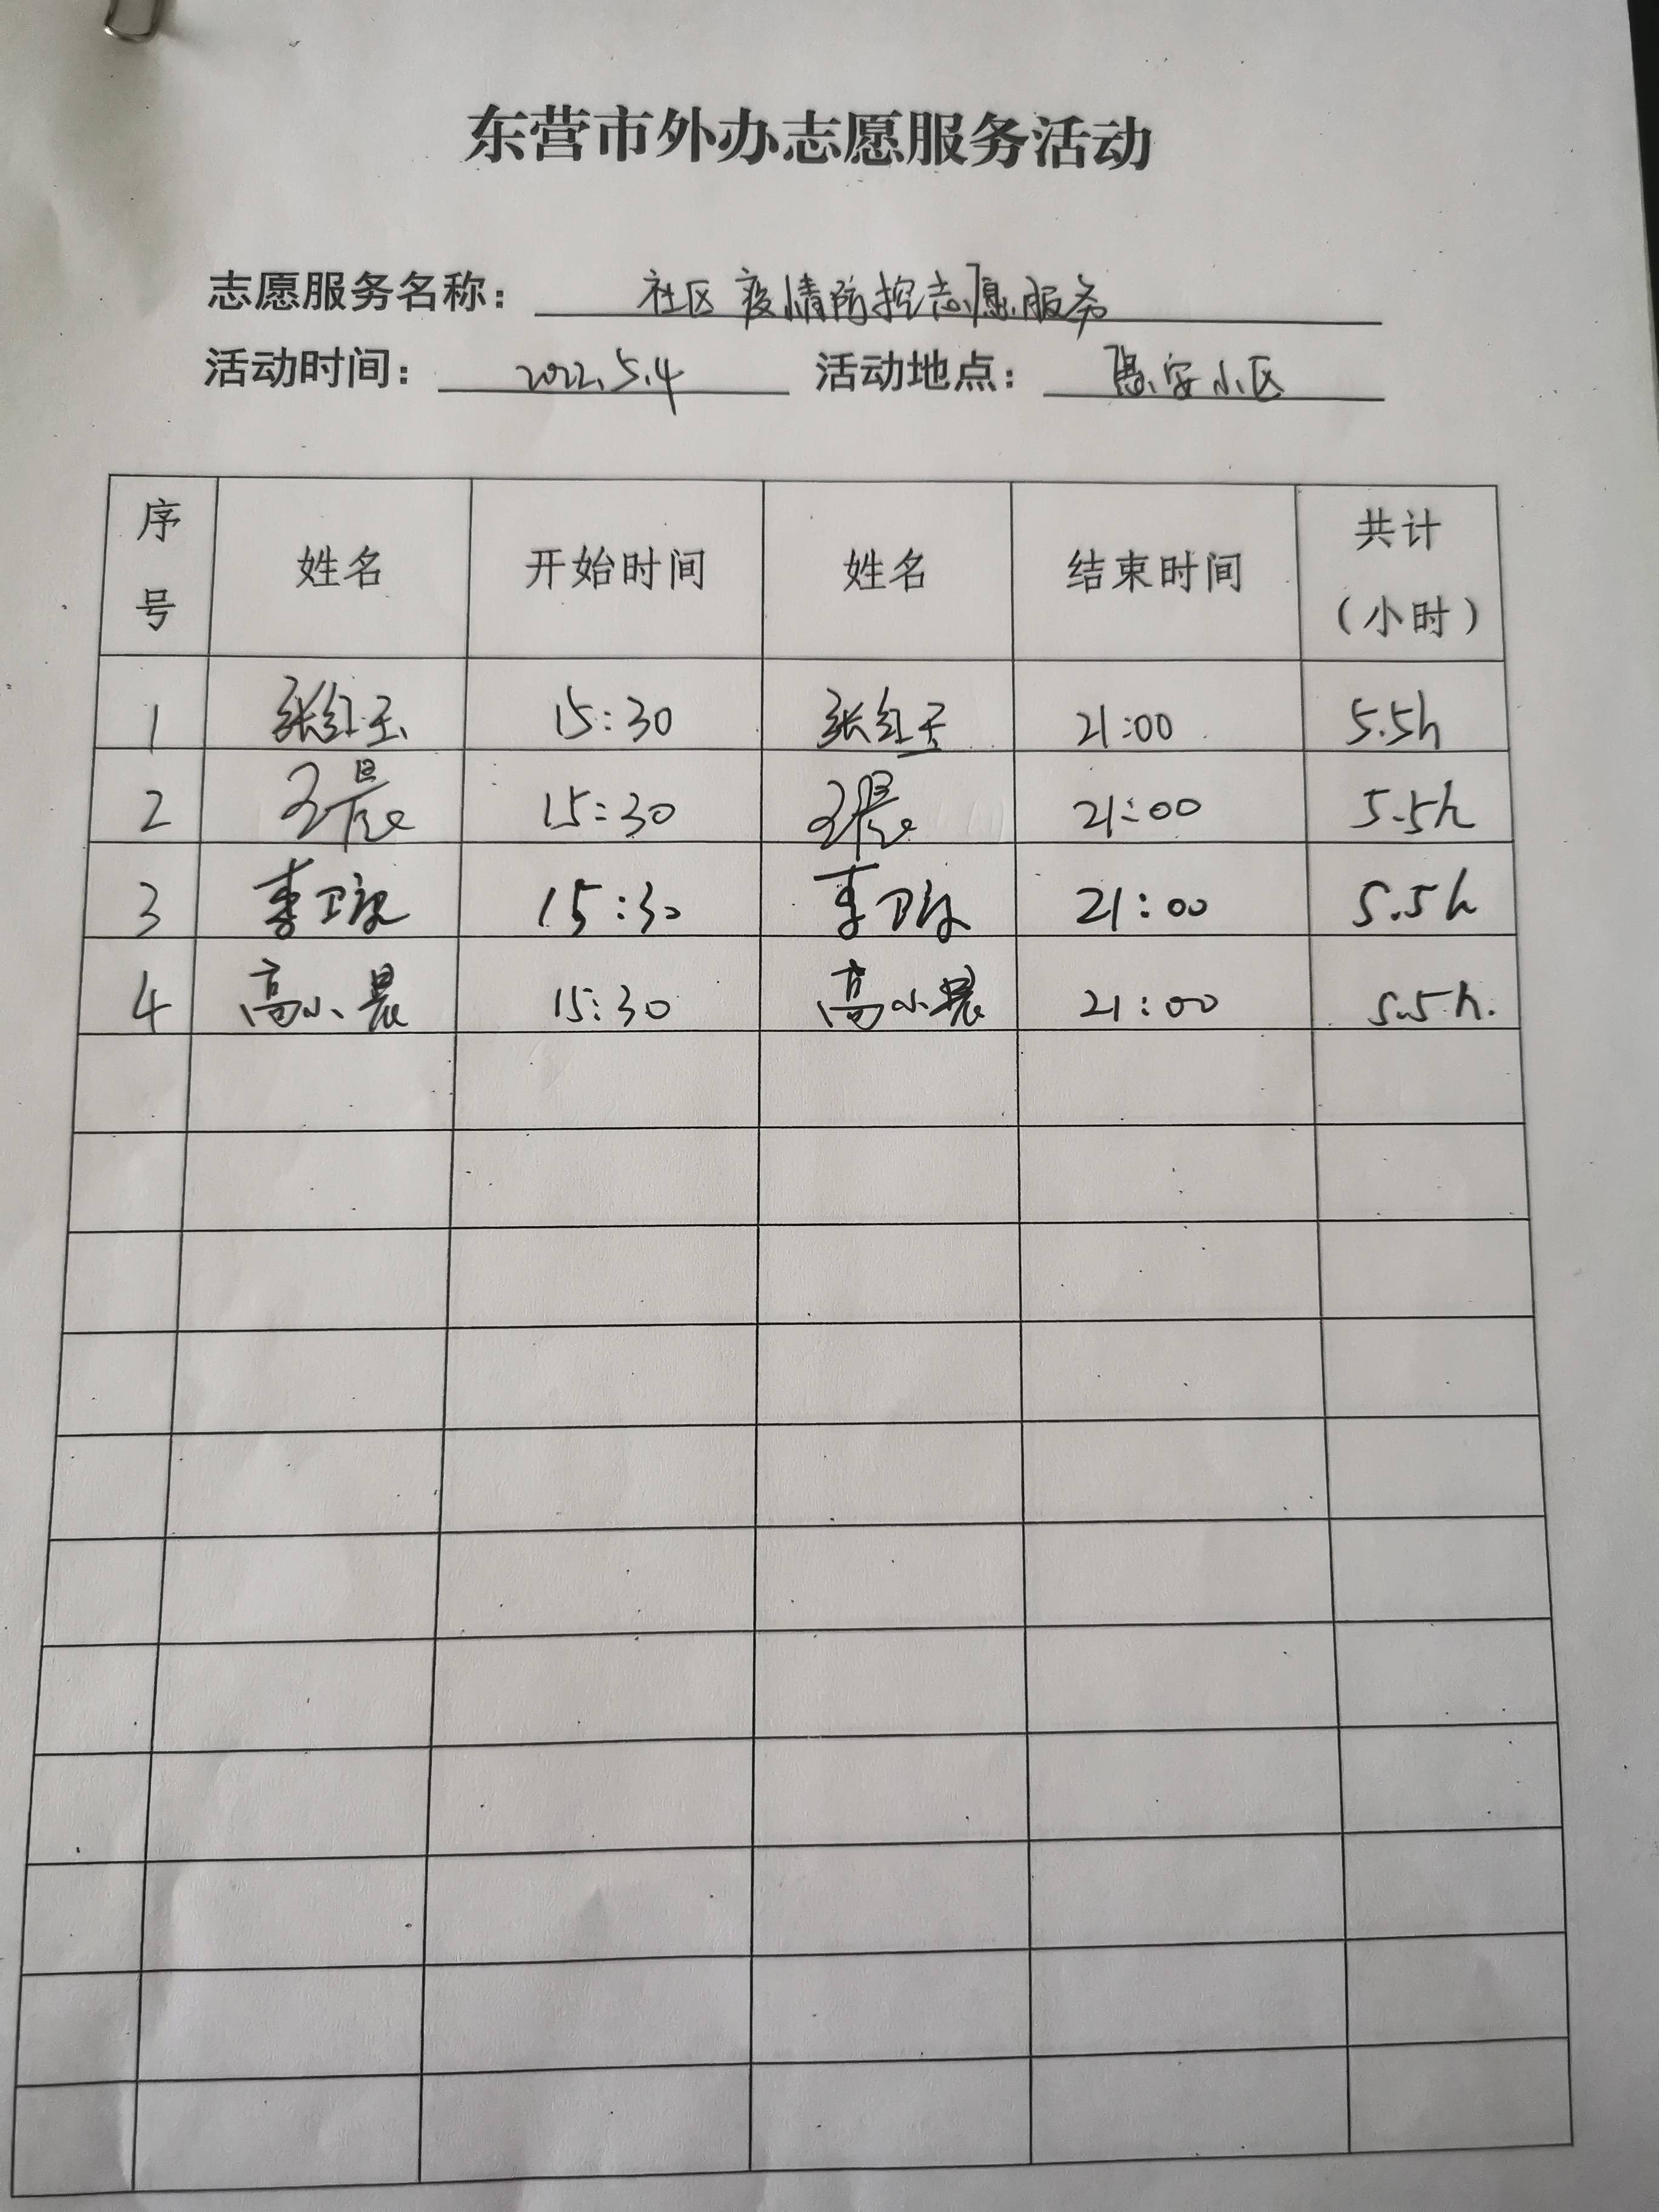 东营市外办志愿服务活动
志愿服务名称： 社区疫情防控志愿服务
活动时间： 2022.5.4 活动地点： 安小区
序号 姓名 开始时间 姓名 结束时间 共计（小时）
1 张红玉 15:30 张红玉 21:00 5.5h
2 王晨 15:30 王晨 21:00 5.5h
3 李 15:30 李 21:00 5.5h
4 高小晨 15:30 高小晨 21:00 5.5h.